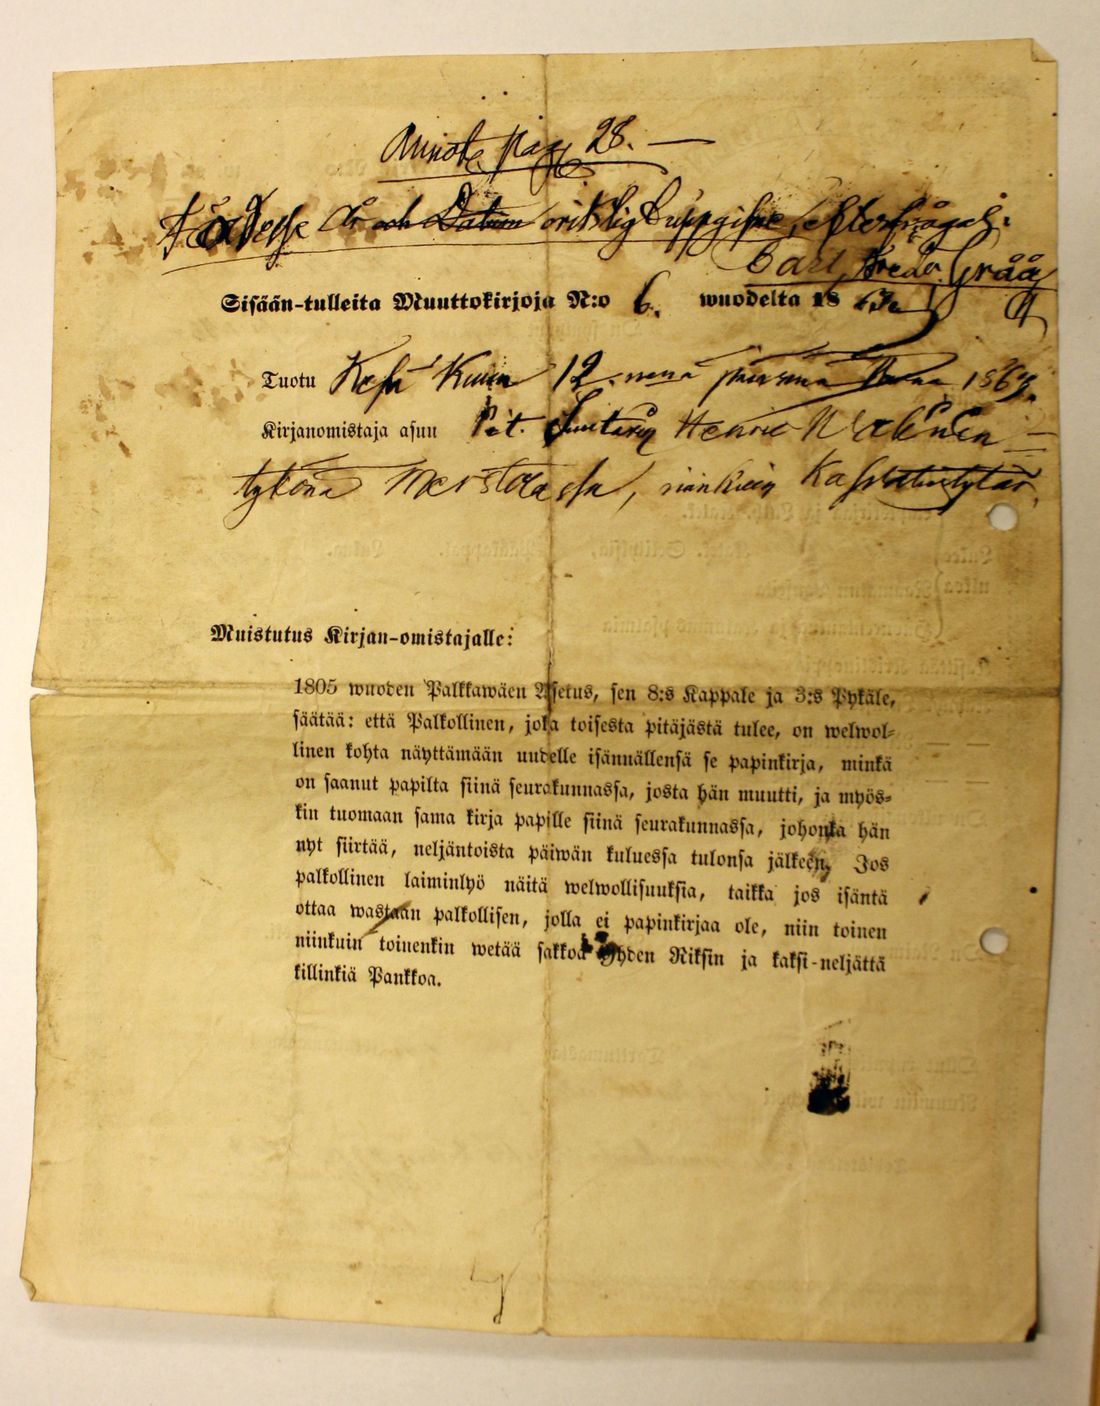 pag 28. —
Födelse År och Datum oriktigt uppgifne, efterfrågas.
Carl Fredr. Gråå
Sisään-tulleita Muuttokirjoja N:o 6. wuodelta 18 63
Tuotu Kesä Kuun 12. nenä päivänä 1863.
Kirjanomistaja asuu Henric
tykönä, niinkuin
Muistutus Kirjan-omistajalle:
1805 wuoden Palkkawäen Asetus, sen 8:s Kappale ja 3:s Pykäle,
säätää: että Palkollinen, joka toisesta pitäjästä tulee, on welwol-
linen kohta näyttämään uudelle isännällensä se papinkirja, minkä
on saanut papilta siinä seurakunnassa, josta hän muutti, ja myös-
kin tuomaan sama kirja papille siinä seurakunnassa, johonka hän
nyt siirtää, neljäntoista päiwän kuluessa tulonsa jälkeen. Jos
palkollinen laiminlyö näitä welwollisuuksia, taikka jos isäntä
ottaa wastaan palkollisen, jolla ei papinkirjaa ole, niin toinen
niinkuin toinenkin wetää sakkoa Yhden Riksin ja kaksi-neljättä
killinkiä Pankkoa.